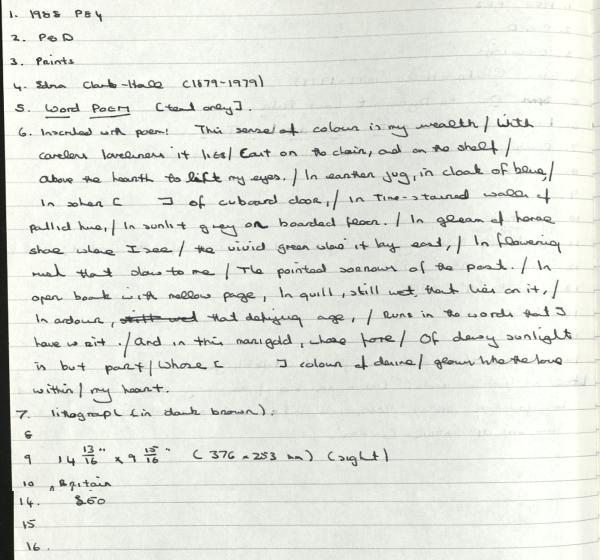 1. 1988 P84
2. P&D
3. Prints
4. Edna Clarke-Hall (1879-1979)
5. Word Poem [text only].
6. Inscribed with poem: This sense of colour is my wealth / With
careless loveliness it lies / Cast on the chair, and on the shelf /
Above the hearth to lift my eyes. / In earthen jug, in cloak of blue, /
In sober [ ] of cuboard door, / in Time-stained walls of
pallid hue, / In sunlit grey on boarded floor. / In gleam of horse
shoe where I see / the vivid green was it by east, / In flowering
that to me / The pointed of the past. / In
open book with mellow page, In quill, still wet, that lies on it, /
In ardour, that defying age, / Runs in the words that I
have writ. / And in this marigold, whose fore / Of dewy sunlight
is but part / Whose [ ] colour of desire / glows like the love
within / my heart.
7. lithograph (in dark brown).
8
9 14 13/16" x 9 15/16" (376 x 253 mm) (sight)
10 Britain
14. £50
15
16.